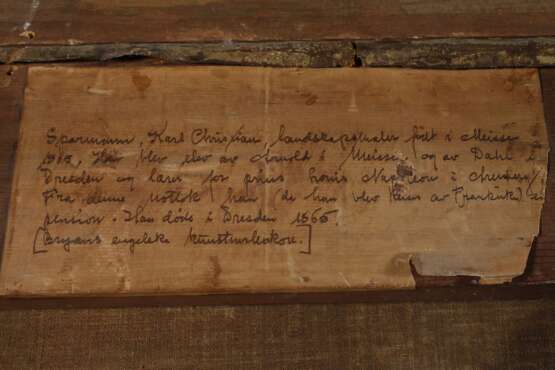 Sparmann, Karl Christian, landskapsmaler født i Meissen
Han blev elev av Arnold i Meissen og av Dahl i
Dresden og lærer for prins Louis Napoleon i
Fra denne han (da han blev av Frankrike)
pension. Han døde i Dresden 1865.
[Bryans engelske kunstnerlexikon.]